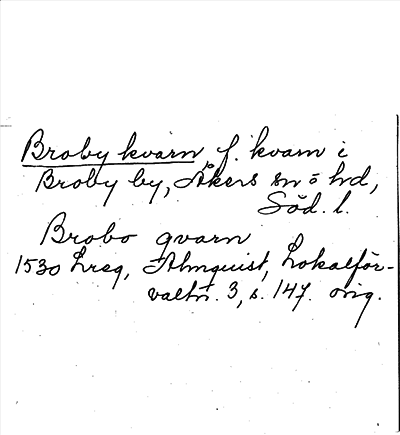 Broby kvarn f. kvarn i
Broby by, Åkers sn o hd,
Söd. l.
Brobo qvarn
1530 Lreg, Almquist, Lokalför-
valtn. 3, s. 147. orig.